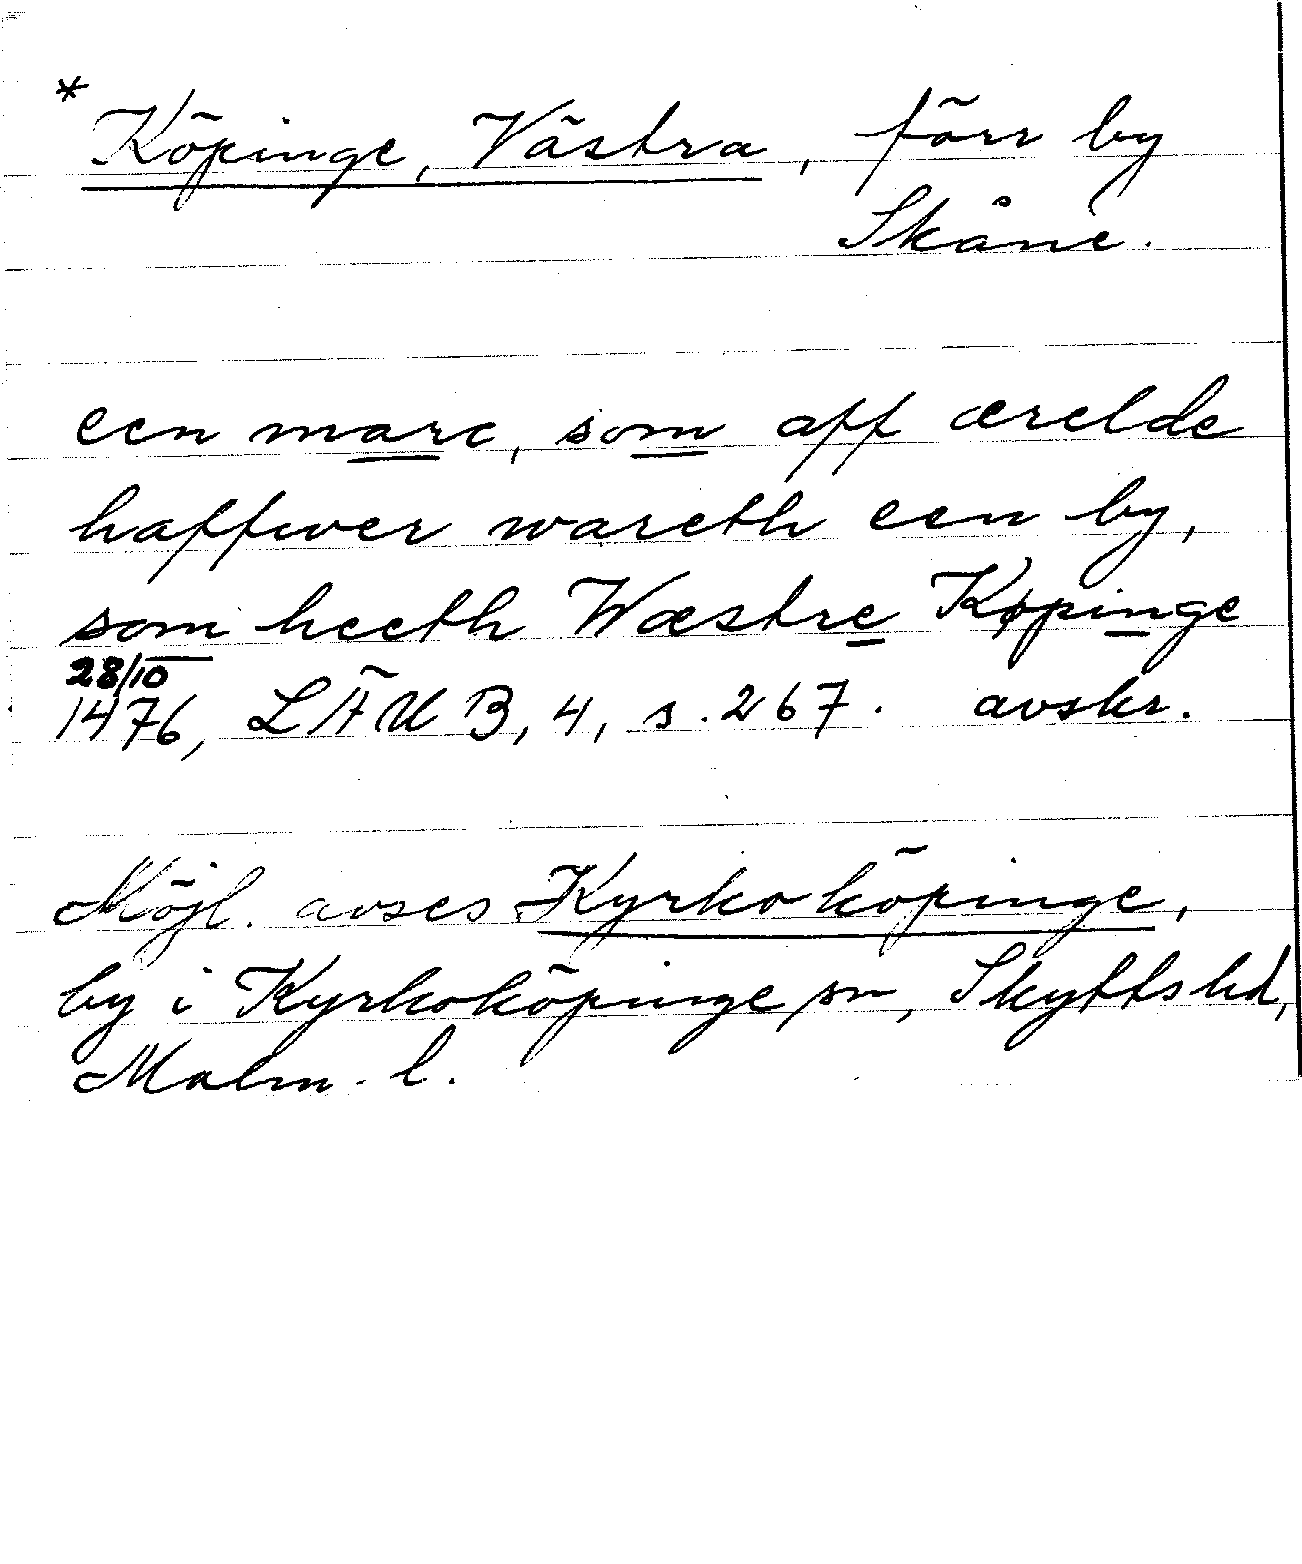 * Köpinge, Västra, förr by
Skåne.
een marc, som aff ærelde
haffwer wareth een by,
som heeth Wæstre Køpinge
28/10
1476, LÄUB, 4, s. 267. avskr.
Möjl. avses Kyrkoköpinge,
by i Kyrkoköpinge sn, Skytts hd,
Malm. l.